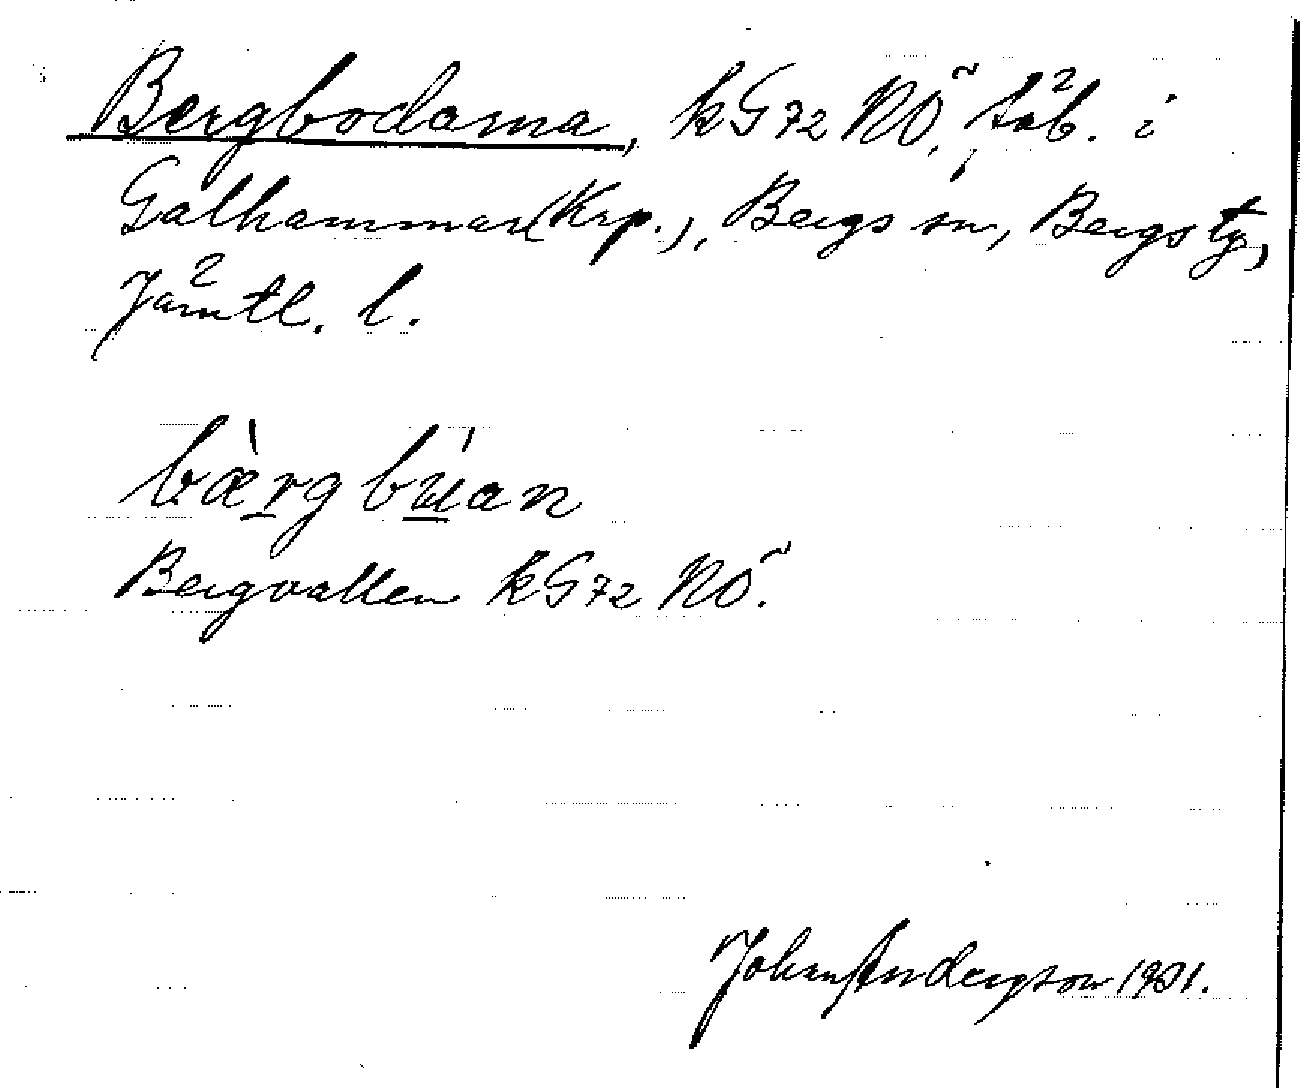 Bergbodarna, kG72 NÖ, fäb. i
Galhammar (Krp.), Bergs sn, Bergs tg,
Jämtl. l.
bærgbuan
Bergvallen kG72 NÖ.
Johan Andersson 1931.